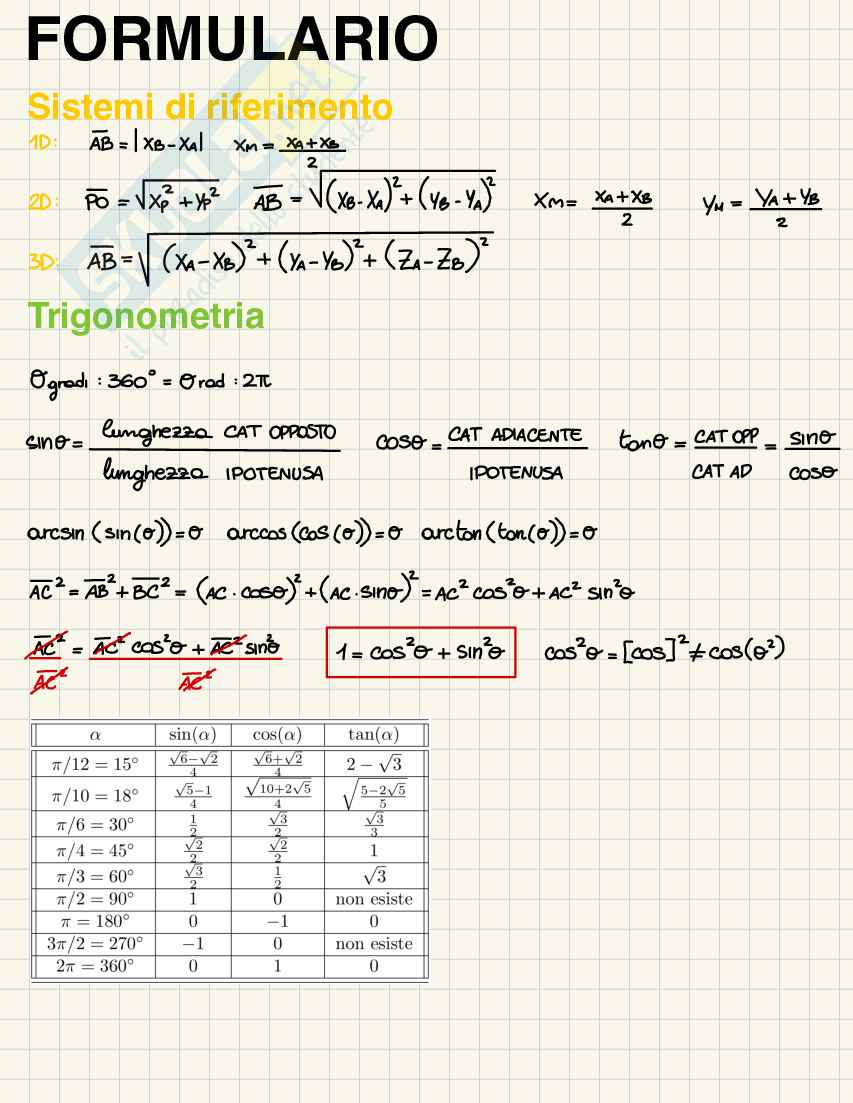 FORMULARIO
Sistemi di riferimento
1D: AB = |xB - xA| xM = (xA + xB)/2
2D: PO = √(xP² + yP²) AB = √((xB - xA)² + (yB - yA)²) xM = (xA + xB)/2 yM = (yA + yB)/2
3D: AB = √((xA - xB)² + (yA - yB)² + (zA - zB)²)
Trigonometria
θgradi : 360° = θrad : 2π
sinθ = lunghezza CAT OPPOSTO / lunghezza IPOTENUSA cosθ = CAT ADIACENTE / IPOTENUSA tanθ = CAT OPP / CAT AD = sinθ / cosθ
arcsin(sin(θ)) = θ arccos(cos(θ)) = θ arctan(tan(θ)) = θ
AC² = AB² + BC² = (AC · cosθ)² + (AC · sinθ)² = AC² cos²θ + AC² sin²θ
AC²/AC² = (AC² cos²θ + AC² sin²θ)/AC² 1 = cos²θ + sin²θ cos²θ = [cos]² ≠ cos(θ²)
α sin(α) cos(α) tan(α)
π/12 = 15° (√6−√2)/4 (√6+√2)/4 2 − √3
π/10 = 18° (√5−1)/4 √(10+2√5)/4 √((5−2√5)/5)
π/6 = 30° 1/2 √3/2 √3/3
π/4 = 45° √2/2 √2/2 1
π/3 = 60° √3/2 1/2 √3
π/2 = 90° 1 0 non esiste
π = 180° 0 −1 0
3π/2 = 270° −1 0 non esiste
2π = 360° 0 1 0